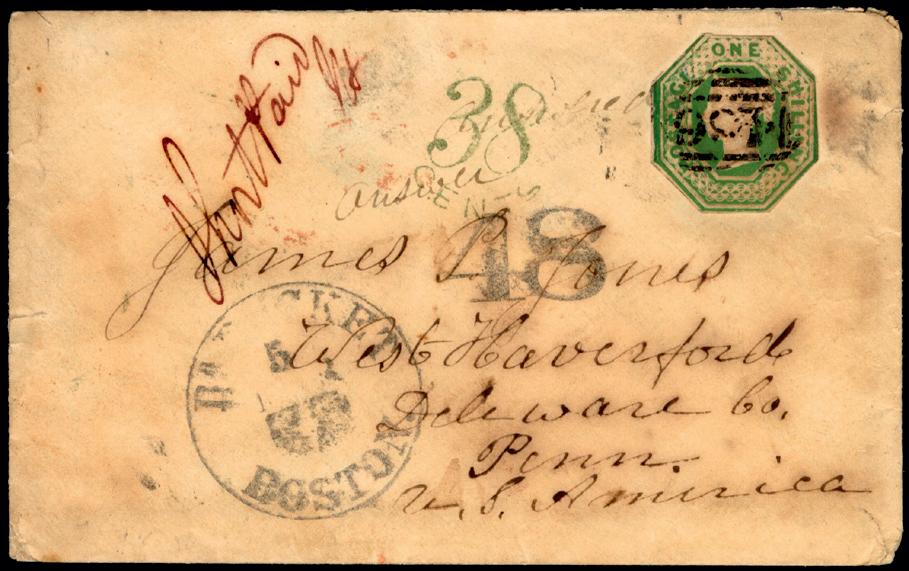 ONE SHILLING
POSTAGE
38
CENTS
answer
48
James P. Jones
West Haverford
Delaware Co.
Penn.
U. S. America
BR PACKET
BOSTON